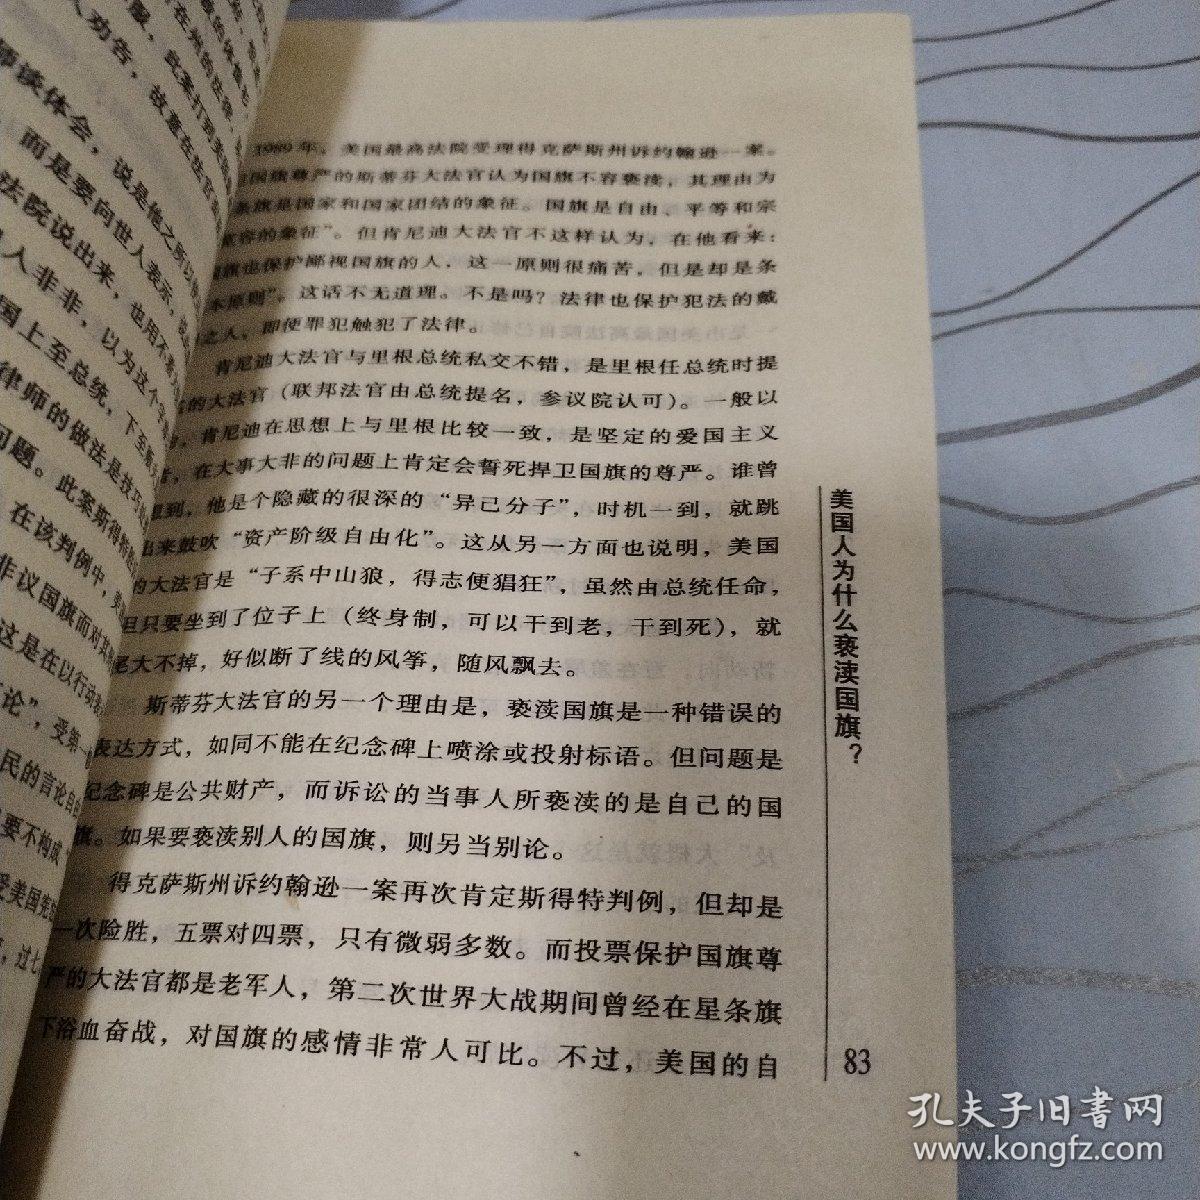 服，此案打到美国
人劝告，故意在法官
师谈体会，说是他之所以
而是要向世人表示，
法院说出来，也用不着
人非非，以为这个
国上至总统，下至
律师的做法是技巧
问题。此案斯得特
在该判例中，
非议国旗而对其
这是在以行动
论”，受第一
民的言论自
要不构成
受美国宪
，过七
1989年，美国最高法院受理得克萨斯州诉约翰逊一案。
国旗尊严的斯蒂芬大法官认为国旗不容亵渎，其理由为
条旗是国家和国家团结的象征。国旗是自由、平等和宗
宽容的象征”。但肯尼迪大法官不这样认为，在他看来：
旗也保护鄙视国旗的人，这一原则很痛苦，但是却是条
本原则”。这话不无道理。不是吗？法律也保护犯法的戴
之人，即使罪犯触犯了法律。
肯尼迪大法官与里根总统私交不错，是里根任总统时提
名的大法官（联邦法官由总统提名，参议院认可）。一般以
，肯尼迪在思想上与里根比较一致，是坚定的爱国主义
者，在大事大非的问题上肯定会誓死捍卫国旗的尊严。谁曾
想到，他是个隐藏的很深的“异己分子”，时机一到，就跳
出来鼓吹“资产阶级自由化”。这从另一方面也说明，美国
的大法官是“子系中山狼，得志便猖狂”，虽然由总统任命，
但只要坐到了位子上（终身制，可以干到老，干到死），就
尾大不掉，好似断了线的风筝，随风飘去。
斯蒂芬大法官的另一个理由是，亵渎国旗是一种错误的
表达方式，如同不能在纪念碑上喷涂或投射标语。但问题是
纪念碑是公共财产，而诉讼的当事人所亵渎的是自己的国
旗。如果要亵渎别人的国旗，则另当别论。
得克萨斯州诉约翰逊一案再次肯定斯得特判例，但却是
一次险胜，五票对四票，只有微弱多数。而投票保护国旗尊
严的大法官都是老军人，第二次世界大战期间曾经在星条旗
下浴血奋战，对国旗的感情非常人可比。不过，美国的自
美国人为什么亵渎国旗？
83
孔夫子旧书网
www.kongfz.com